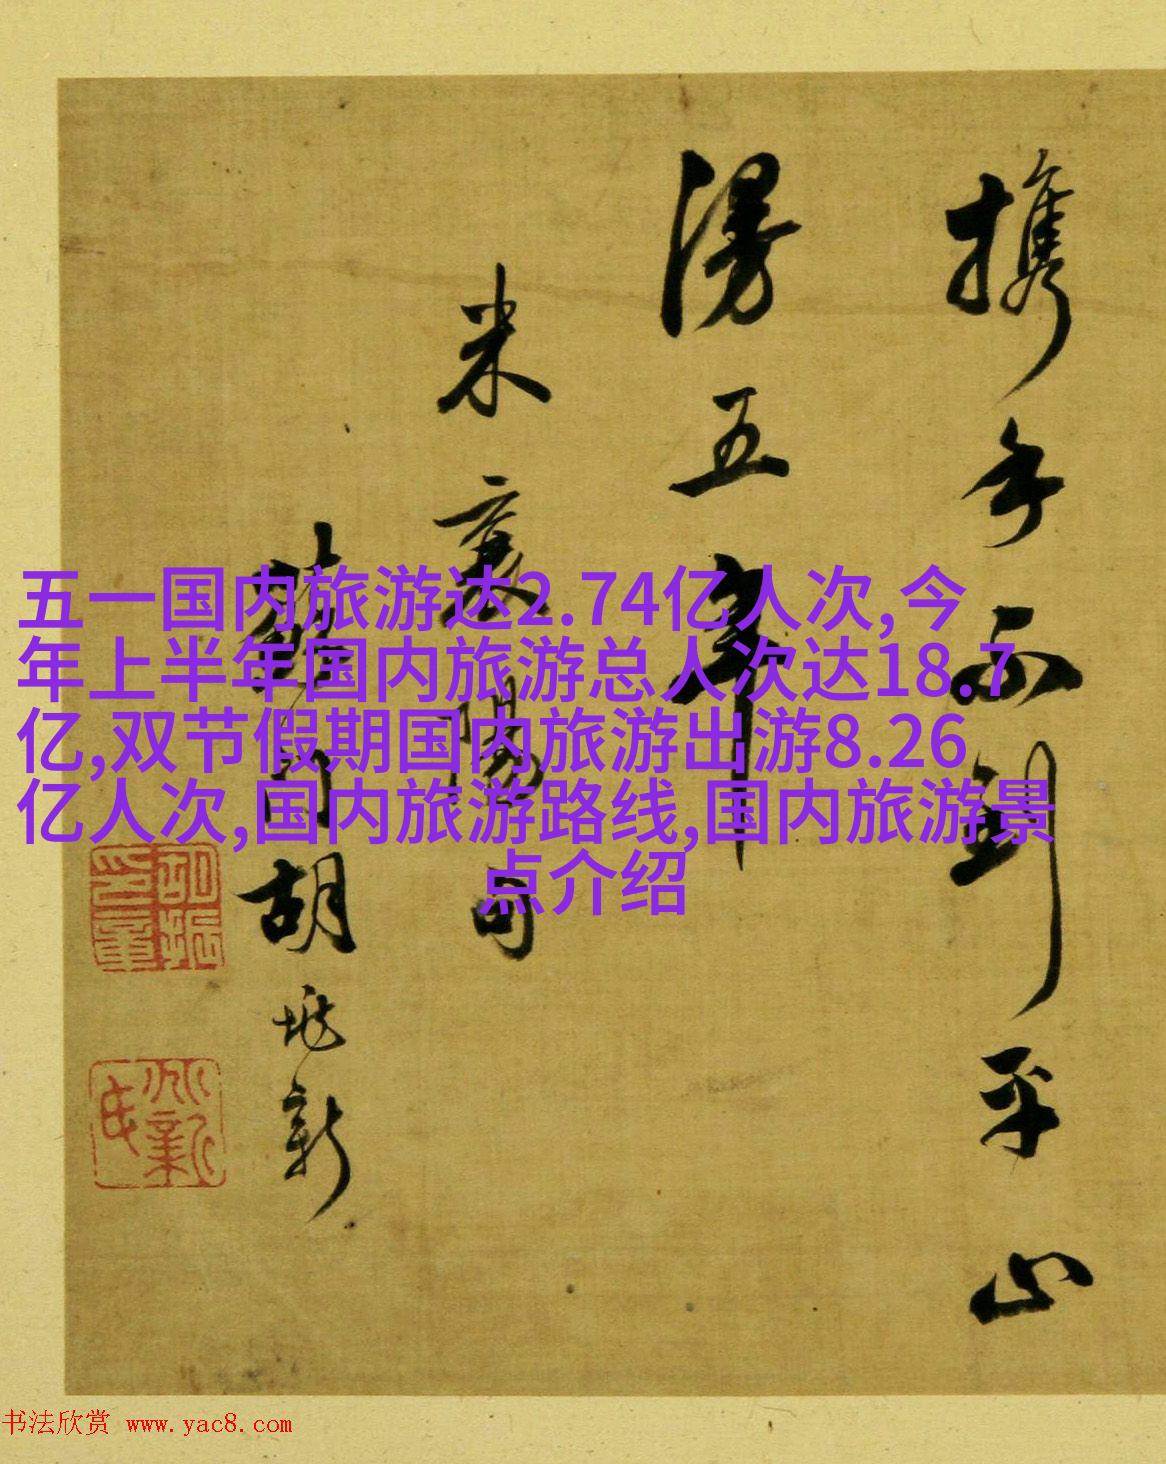 携手不到平山
湯五年
米襄陽句
胡兆新
五一国内旅游达2.74亿人次,今
年上半年国内旅游总人次达18.7
亿,双节假期国内旅游出游8.26
亿人次,国内旅游路线,国内旅游景
点介绍
书法欣赏 www.yac8.com